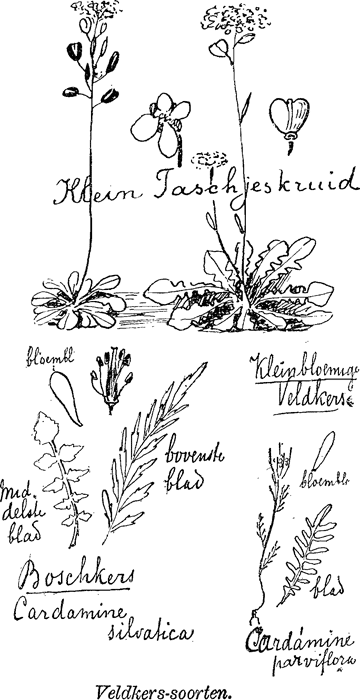 Klein Taschjeskruid
bloembl
bovenste
blad
Mid
delste
blad
Boschkers
Cardamine
silvatica
Kleinbloemige
Veldkers
bloemble
blad
Cardámine
parviflora
Veldkers-soorten.